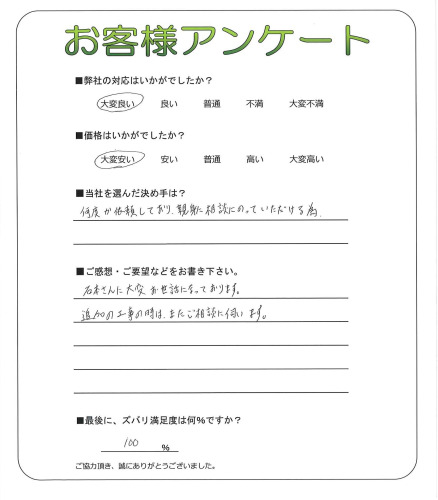 お客様アンケート
■弊社の対応はいかがでしたか？
大変良い 良い 普通 不満 大変不満
■価格はいかがでしたか？
大変安い 安い 普通 高い 大変高い
■当社を選んだ決め手は？
何度か依頼しており、親身に相談にのっていただける為
■ご感想・ご要望などをお書き下さい。
石本さんに大変お世話になっております。
追加の工事の時は、またご相談に伺います。
■最後に、ズバリ満足度は何%ですか？
100 %
ご協力頂き、誠にありがとうございました。